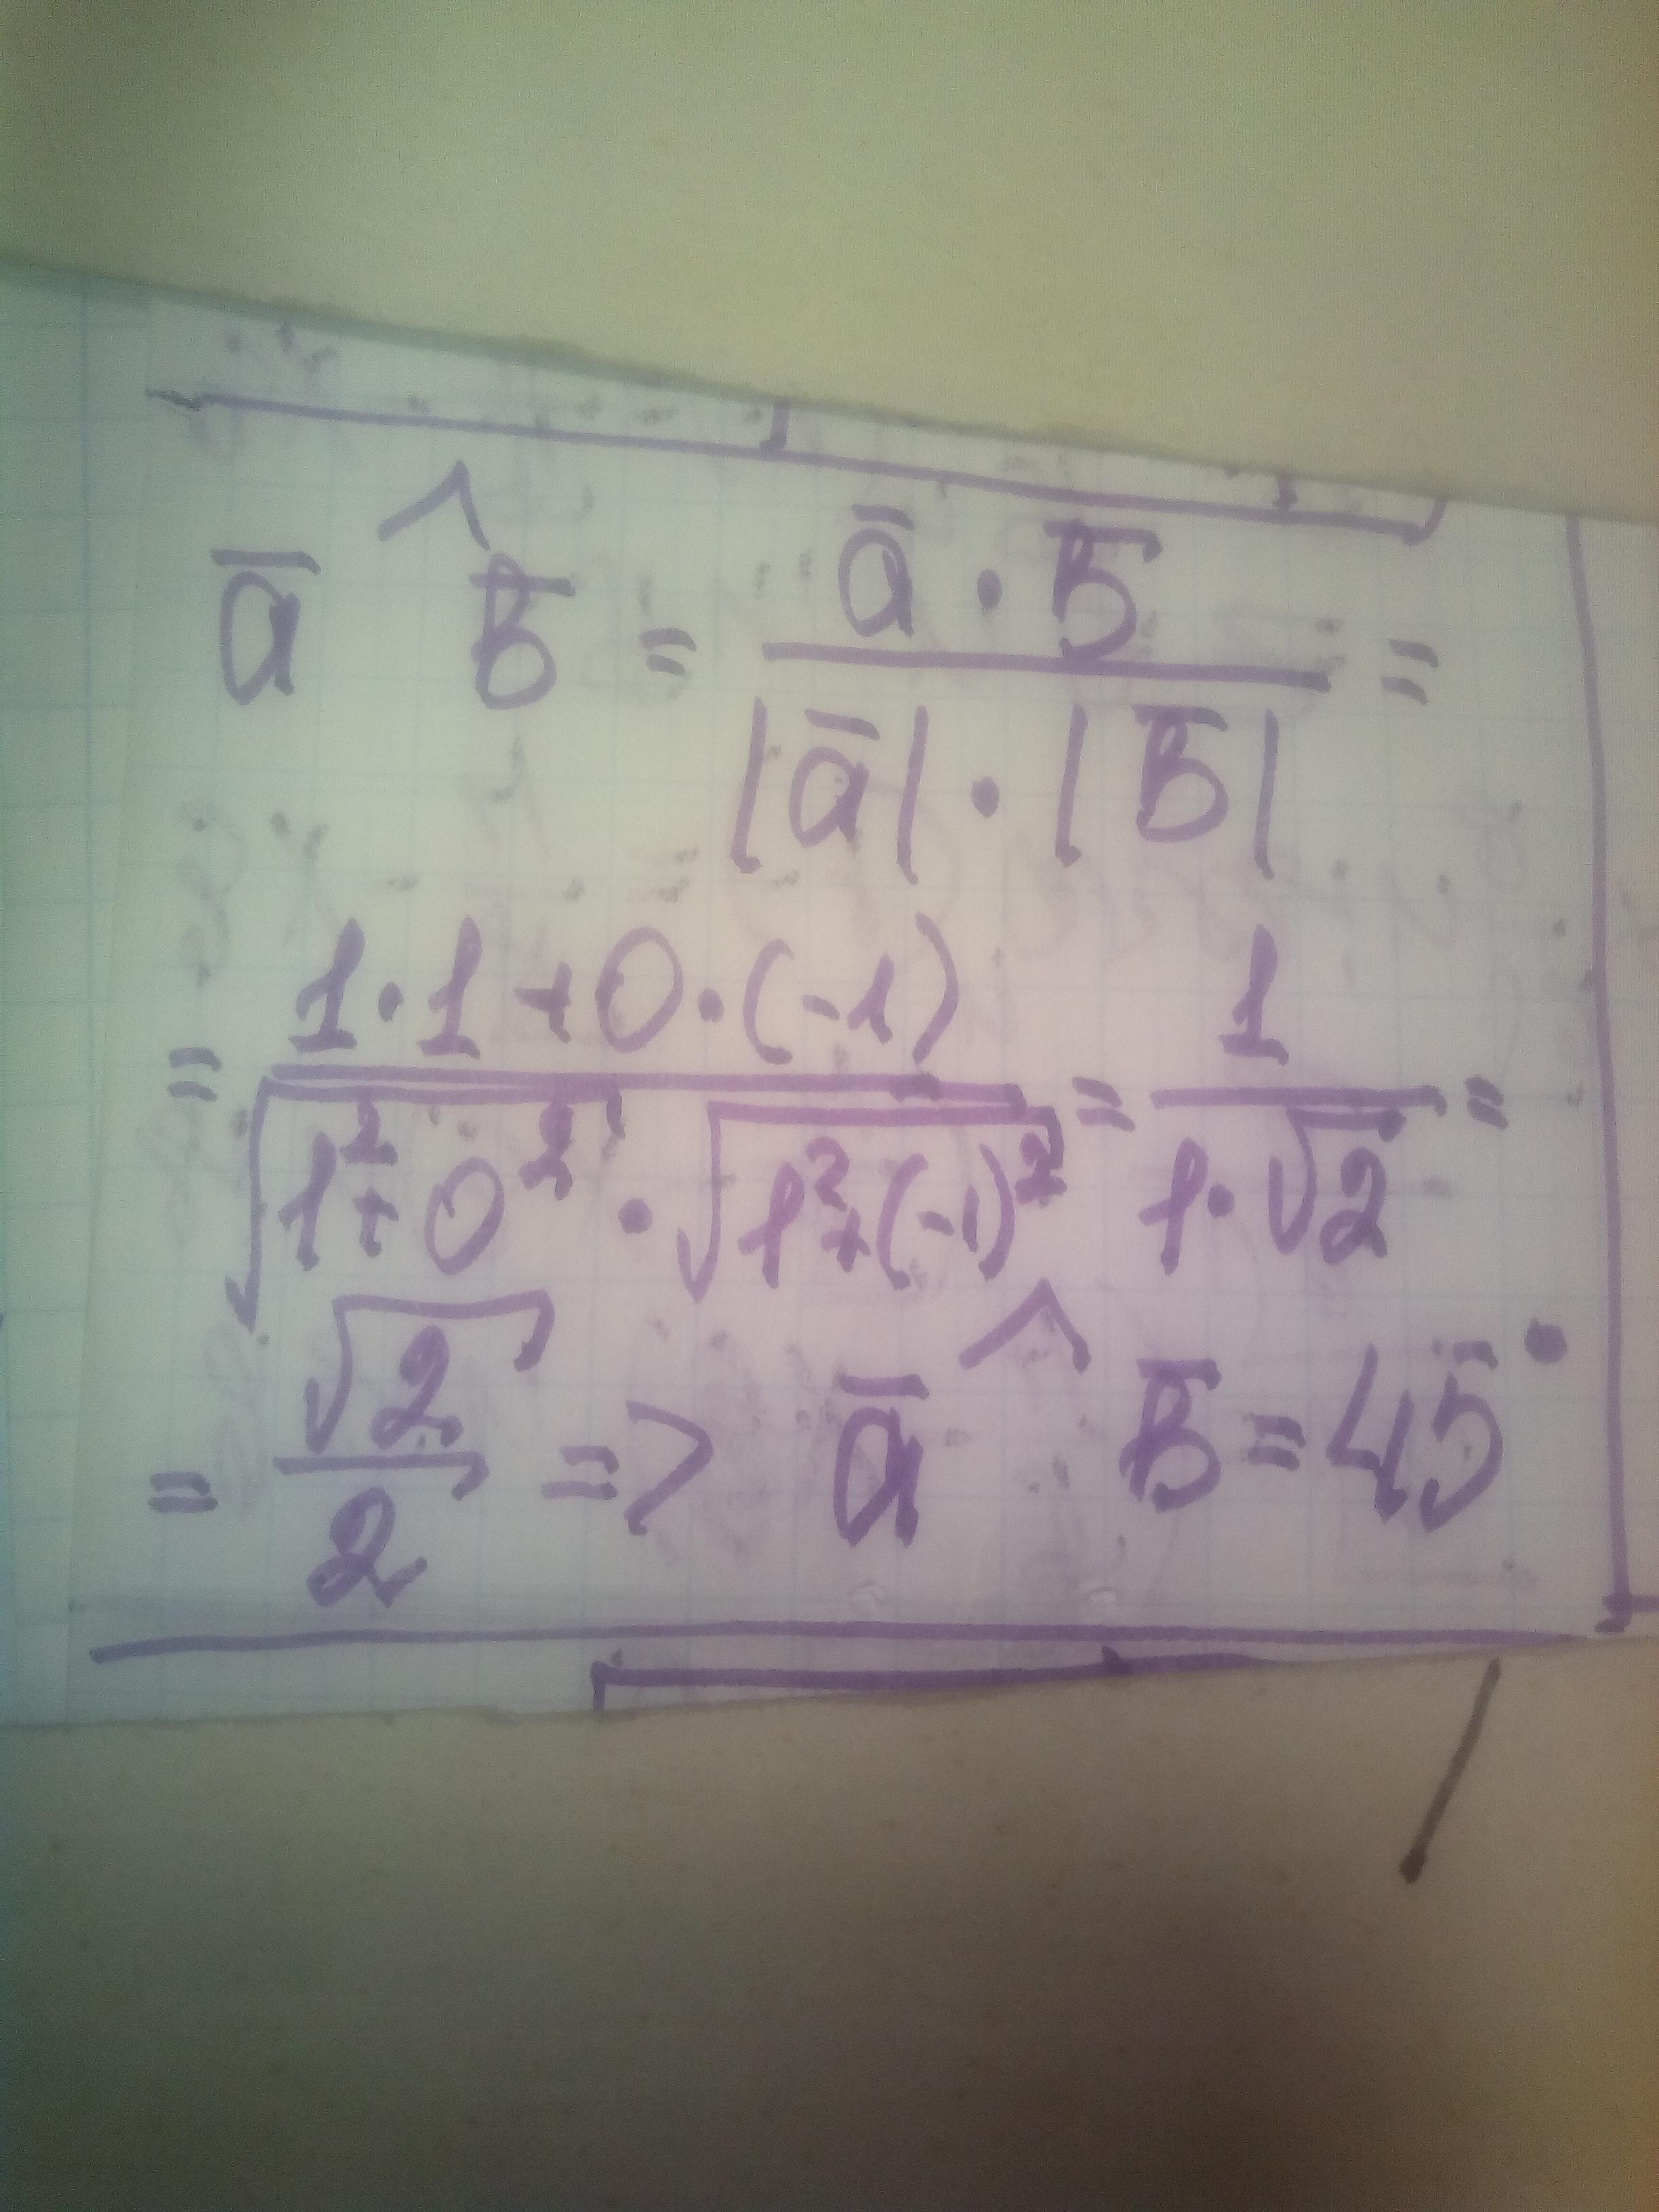 a̅ ^ b̅ = (a̅ · b̅) / (|a̅| · |b̅|) =
= (1·1+0·(-1)) / (√(1²+0²) · √(1²+(-1)²)) = 1 / (1·√2) =
= √2 / 2 => a̅ ^ b̅ = 45°